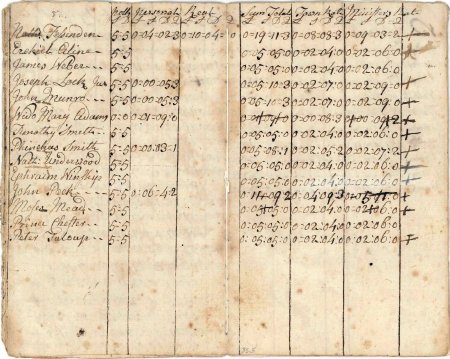 Polls Personal Real Sum Total Town Rate Ministers Rate
Fessenden 5:5 0:04:02:3 0:10:04 0:19:11:3 0:08:08:3 0:09:03:2 +
Ezekiel Cline 5:5
James Weber 5:5 0:05:05:0 0:02:04:0 0:02:06:0 +
Joseph Lock Jur 5:5 0:00:05:3 0:05:10:3 0:02:07:0 0:02:09:0 +
John Munro 5:5 0:00:05:3 0:05:10:3 0:02:07:0 0:02:09:0 +
Wido Mary Adams 0:01:09:0
Timothy Smith 5:5 0:05:05:0 0:02:04:0 0:02:06:0 +
Phinehas Smith 5:5 0:05:2:0 0:02:07:2 +
Nath Underwood 5:5 0:05:05:0 0:02:04:0 0:02:06:0 +
Ephraim Winship 5:5 0:05:05:0 0:02:04:0 0:02:06:0 +
John Peck 5:5 0:06:4:2 +
Moses Mead 5:5 0:05:05:0 0:02:04:0 0:02:06:0 +
Prince Chester 5:5 0:05:05:0 0:02:04:0 0:02:06:0
Peter Tulous 5:5 0:05:05:0 0:02:04:0 0:02:06:0 +